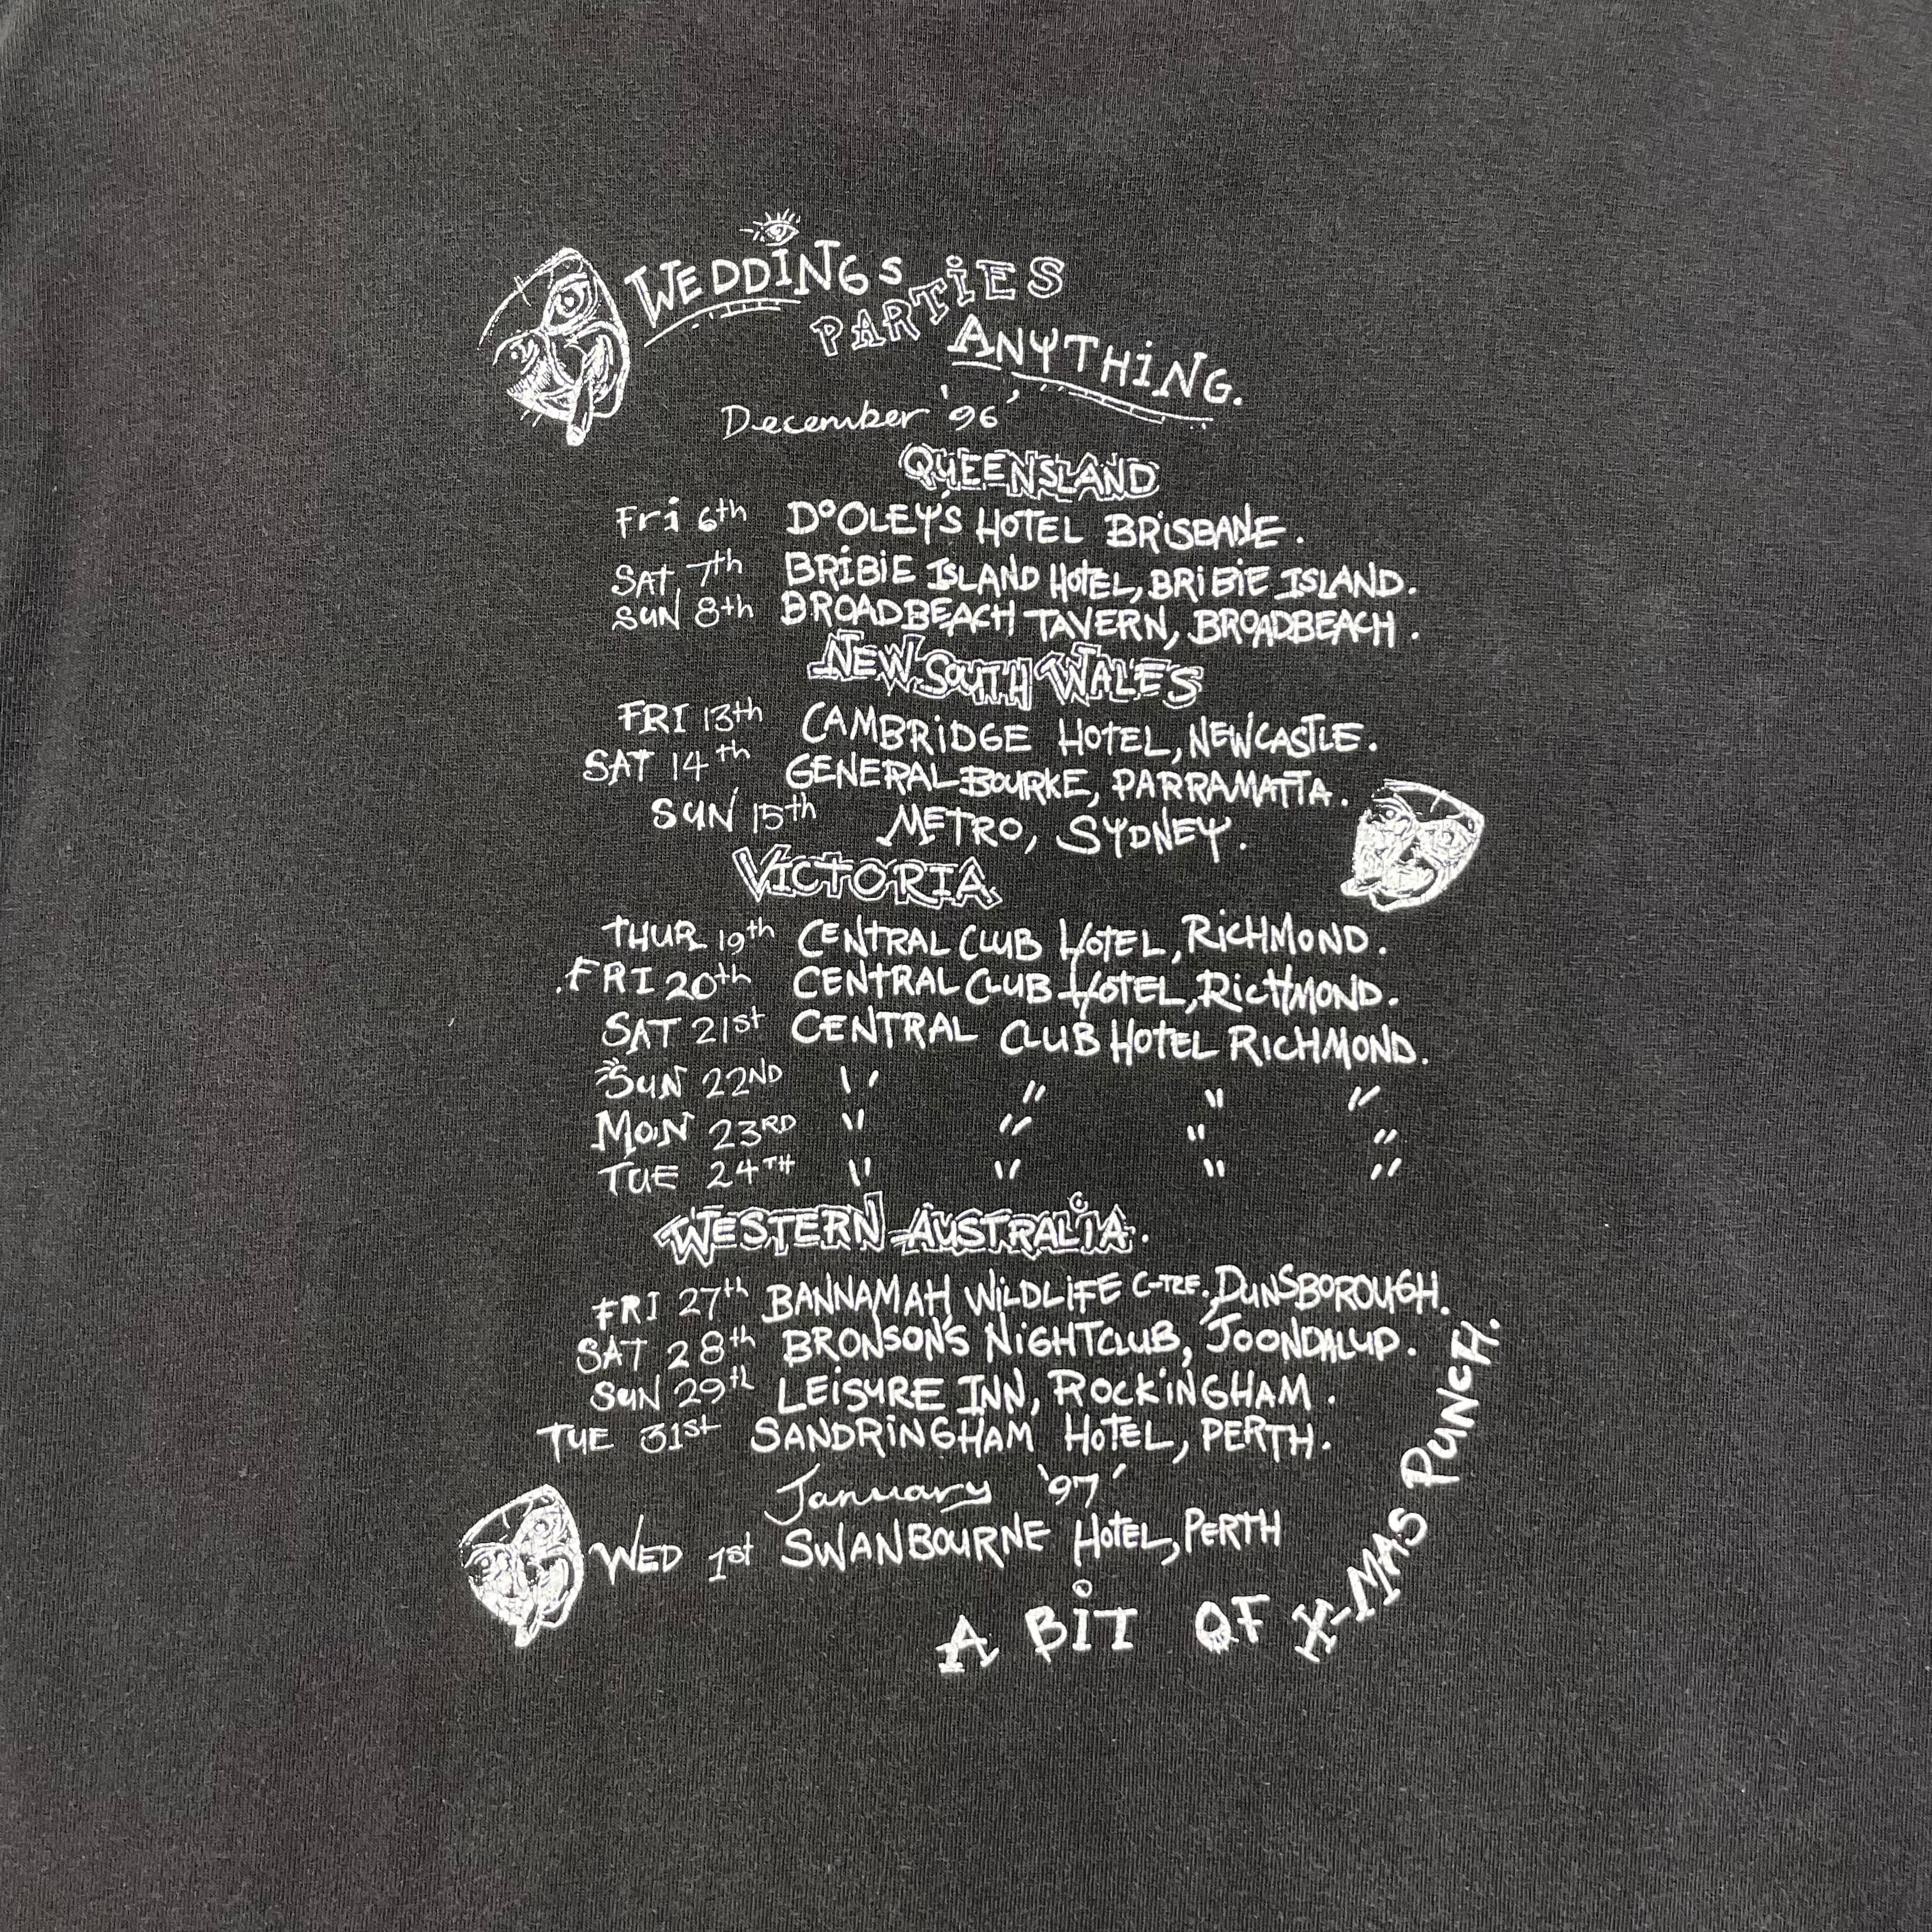 WEDDINGS
PARTIES
ANYTHING.
December '96'
QUEENSLAND
Fri 6th DOOLEY'S HOTEL BRISBANE.
SAT 7th BRIBIE ISLAND HOTEL, BRIBIE ISLAND.
SUN 8th BROADBEACH TAVERN, BROADBEACH.
NEW SOUTH WALES
FRI 13th CAMBRIDGE HOTEL, NEWCASTLE.
SAT 14th GENERAL BOURKE, PARRAMATTA.
SUN 15th METRO, SYDNEY.
VICTORIA
THUR 19th CENTRAL CLUB HOTEL, RICHMOND.
FRI 20th CENTRAL CLUB HOTEL, RICHMOND.
SAT 21st CENTRAL CLUB HOTEL RICHMOND.
SUN 22ND " " " "
MON 23RD " " " "
TUE 24TH " " " "
WESTERN AUSTRALIA.
FRI 27th BANNAMAH WILDLIFE C-TRE, DUNSBOROUGH.
SAT 28th BRONSON'S NIGHTCLUB, JOONDALUP.
SUN 29th LEISURE INN, ROCKINGHAM.
TUE 31st SANDRINGHAM HOTEL, PERTH.
January '97'
WED 1st SWANBOURNE HOTEL, PERTH
A BIT OF X-MAS PUNCH.